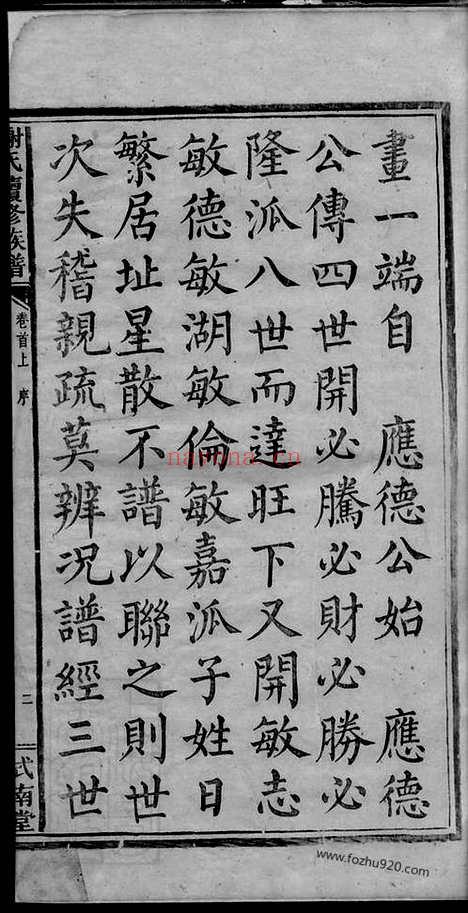 畫一端自　應德公始　應德
公傳四世開必騰必財必勝必
隆派八世而達旺下又開敏志
敏德敏湖敏倫敏嘉派子姓日
繁居址星散不譜以聯之則世
次失稽親疏莫辨况譜經三世
謝氏續修族譜
卷首上　序
二
式南堂
nayona.cn
www.fozhu920.com